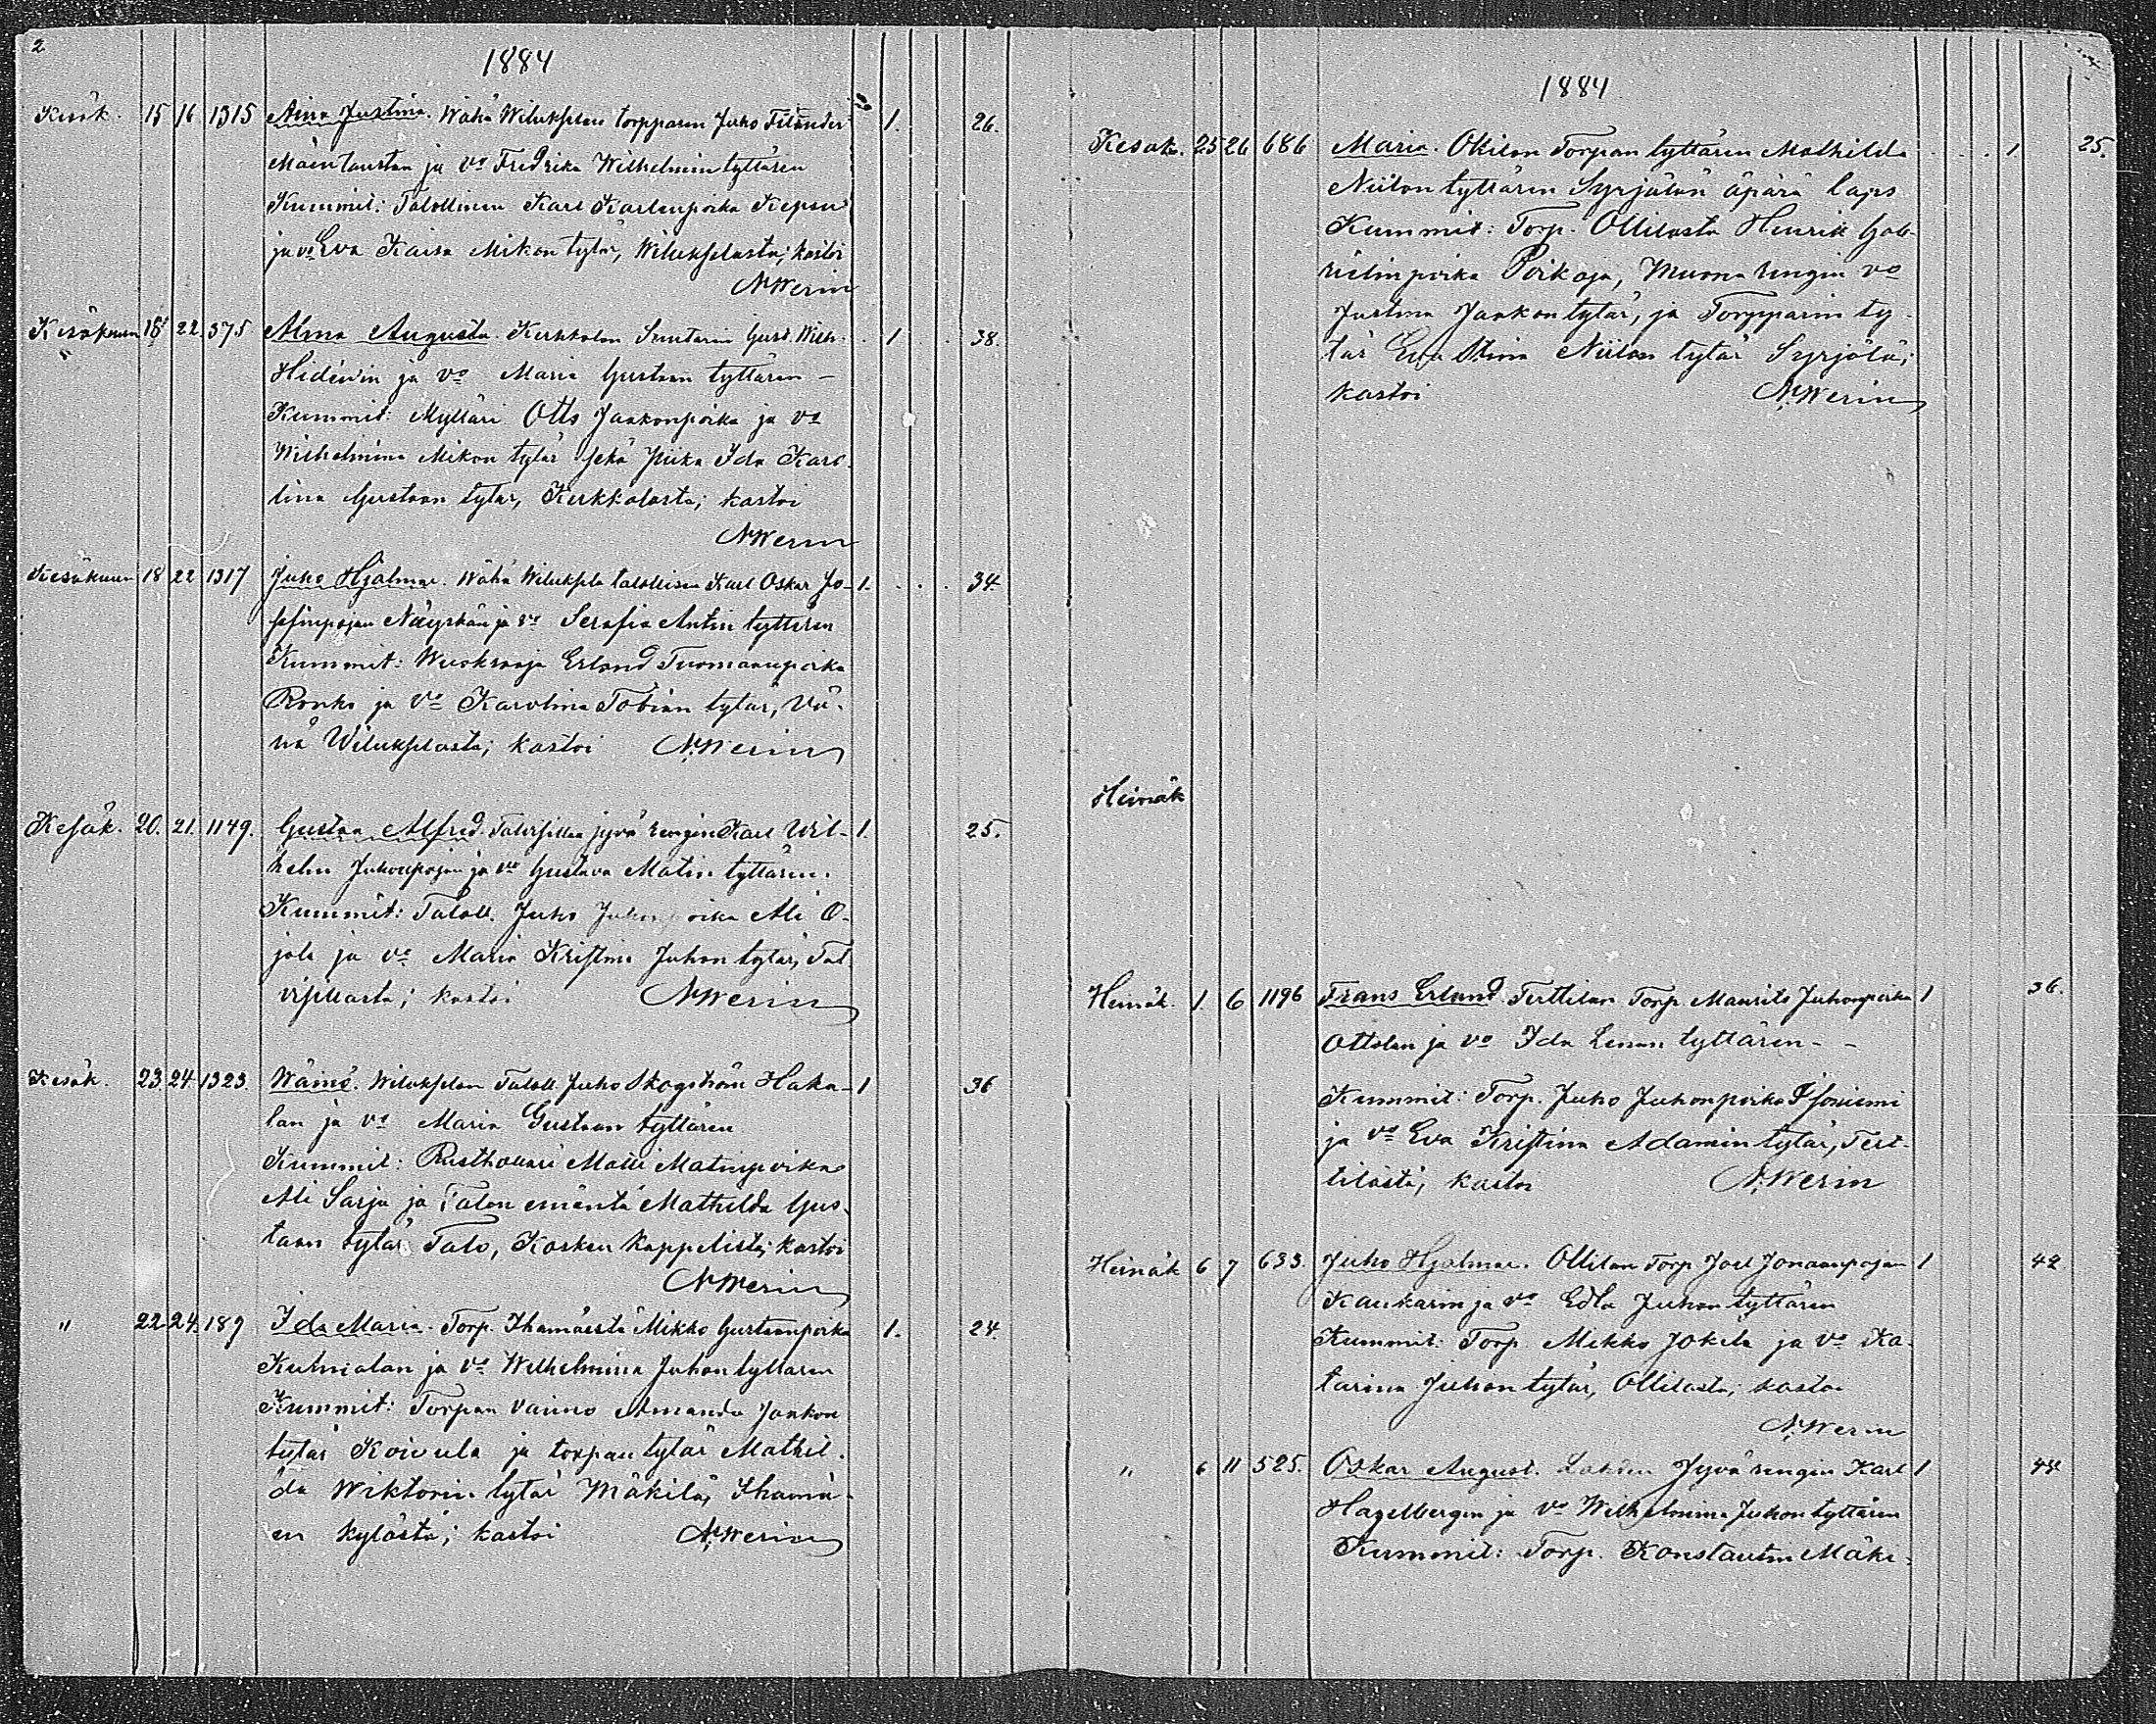 2
1884
Kesäk. 15 16 1315 Aina Justina. Wähä Wiluksilan torpparin Juho Filander 1. 26.
Mäentaustan ja vo Fredrika Wilhelmin tyttären
Kummit: Talollinen Karl Karlenpoika Kepsu
ja vo Eva Kaisa Mikon tytär, Wiluksilasta; kastoi
N. Werin
Kesäkuun 18 22. 375 Alma Augusta. Kerkkolan Suutarin Gust. Wilh. 1 38.
Hidénin ja vo Maria Gustaan tyttären –
Kummit: Mylläri Otto Jaakonpoika ja vo
Wilhelmina Mikon tytär sekä piika Ida Karo-
lina Gustaan tytär, Kerkkolasta; kastoi
N. Werin
Kesäkuun 18 22 1317 Juho Hjalmar. Wähä Wiluksela talollisen Karl Oskar Jo- 1. 34.
sefinpojan Näyskän ja vo Serafia Antin tyttären
Kummit: Wuokraaja Erland Tuomaanpoika
Ronko ja vo Karolina Tobian tytär, Vä-
hä Wilukselasta; kastoi N. Werin
Kesäk. 20. 21. 1149. Gustaa Alfred. Talvisillan jyvä rengin Karl Wil- 1. 25.
helm Juhonpojan ja vo Gustava Matin tyttären.
Kummit: Taloll. Juho Juhonpoika Ali O-
jala ja vo Maria Kristina Juhon tytär, Tal-
visillasta; kastoi N. Werin
Kesäk. 23 24 1323. Wäinö. Wilukselan Taloll Juho Skogström Haka- 1 36
lan ja vo Maria Gustaan tyttären
Kummit: Rusthollari Matti Matinpoika
Ali Sarja ja Talon emäntä Mathilda Gus-
taan tytär Talo, Kosken Kappelista; kastoi
N. Werin
" 22 24. 189 Ida Maria. Torp. Ihamäestä Mikko Gustaanpoika 1. 24.
Kulmalan ja vo Wilhelmina Juhon tyttären
Kummit: Torpan vaimo Amanda Jaakon
tytär Koivula ja torpan tytär Mathil-
da Wiktorin tytär Mäkilä, Ihamä-
en kylästä; kastoi N. Werin
1884
Kesäk. 25 26 686 Maria. Okilan Torpan tyttären Mathilda 1 25.
Niilon tyttären Syrjälän äpärä laps
Kummit: Torp. Ollilasta Henrik Gab-
rielinpoika Poikoja, Muona rengin vo
Justina Jaakon tytär, ja Torpparin ty-
tär Eva Stina Niilon tytär Syrjälä;
kastoi N. Werin
Heinäk
Heinäk. 1. 6 1196 Frans Erland. Terttilan Torp. Maurits Juhonpoika 1 36.
Ottolan ja vo Ida Lenan tyttären - -
Kummit: Torp. Juho Juhonpoika Isoniemi
ja vo Eva Kristina Adamin tytär, Tert-
tilästä; kastoi N. Werin
Heinäk 6 7 633. Juho Hjalmar. Ollilan Torp Joel Jonaanpojan 1 42
Kaukarin ja vo Edla Juhon tyttären
Kummit: Torp. Mikko Jokela ja vo Ka-
tarina Juhon tytär, Ollilasta; kastoi
N. Werin
" 6 11 525. Oskar August. Lahden Jyvä rengin Karl 1 44
Hagelbergin ja vo Wilhelmina Juhon tyttären
Kummit: Torp. Konstantin Mäki-